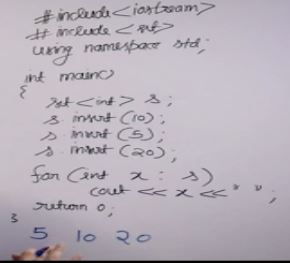 #include<iostream>
#include <set>
using namespace std;
int main()
{
set <int> s;
s. insert (10);
s. insert (5);
s. insert (20);
for (int x : s)
cout << x << " ";
return 0;
}
5 10 20